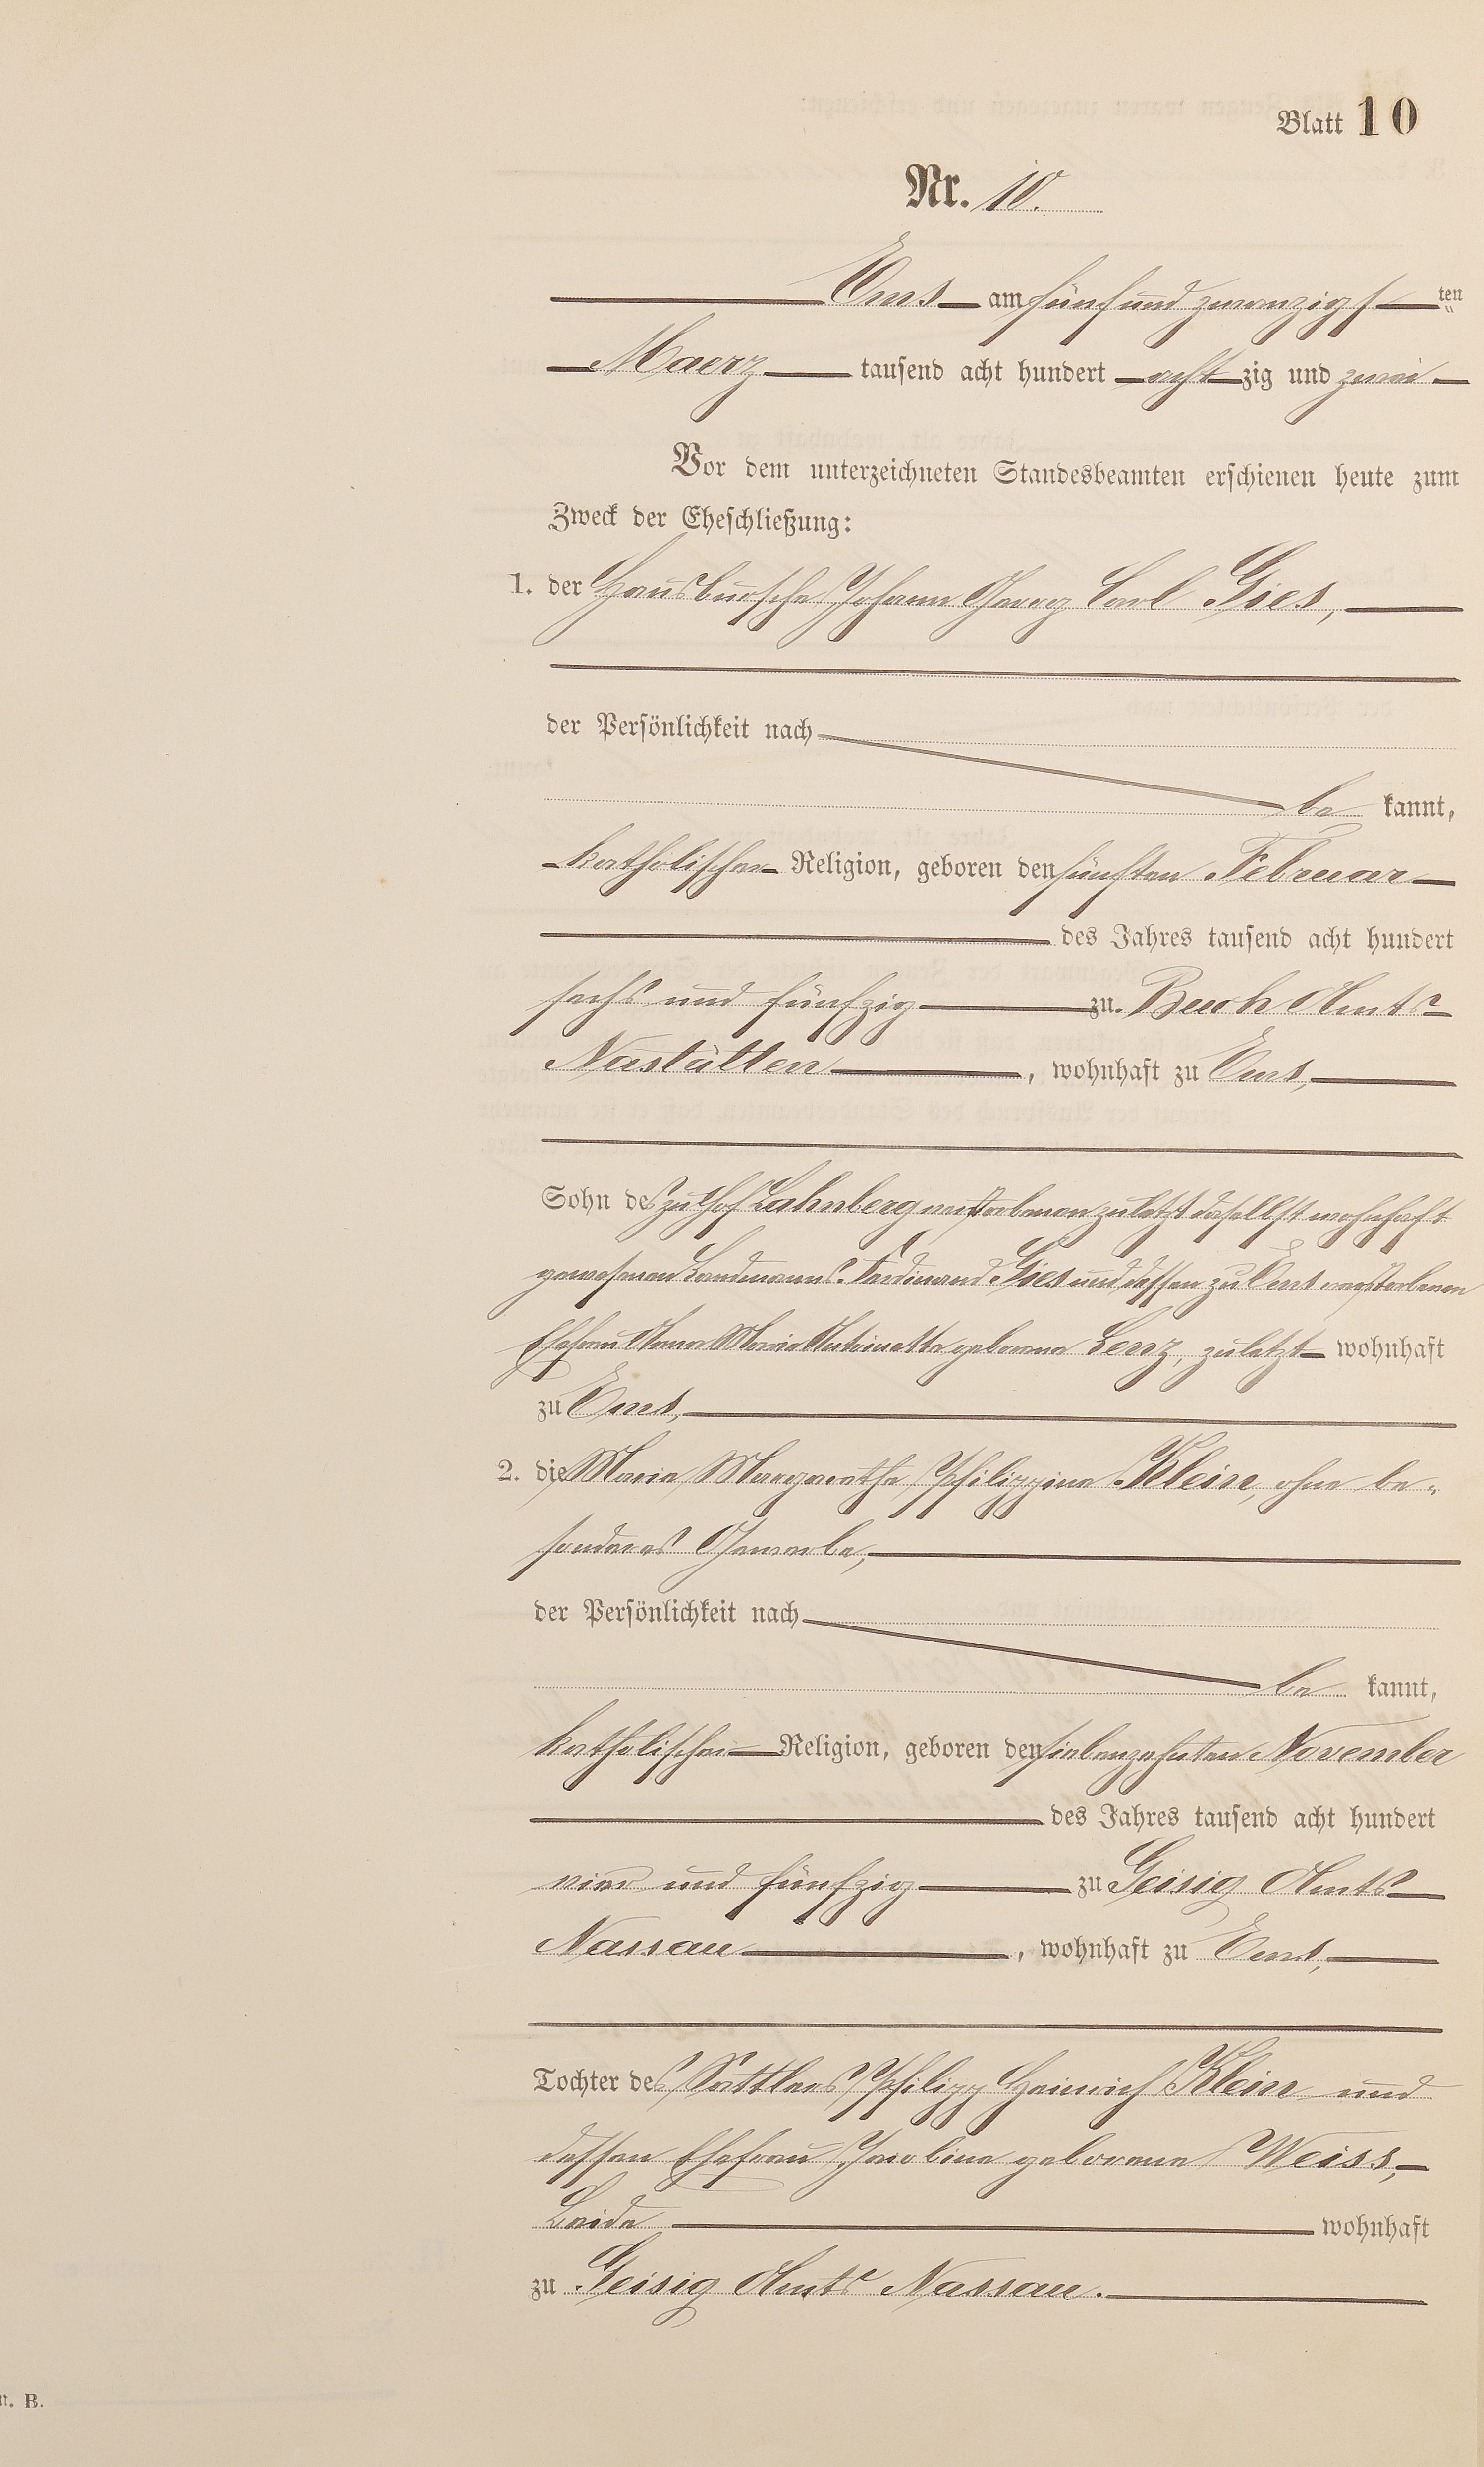 Blatt 10
Nr. 10.
Ems am fünfund zwanzigsten
Maerz tausend acht hundert achtzig und zwei
Vor dem unterzeichneten Standesbeamten erschienen heute zum
Zweck der Eheschließung:
1. der Hausbursche Johann Georg Carl Gies,
der Persönlichkeit nach
be kannt,
katholischer Religion, geboren den fünften Februar
des Jahres tausend acht hundert
sechs und fünfzig zu Buch Amts
Nastätten, wohnhaft zu Ems,
Sohn des zu Hof Lahnberg verstorbenen zuletzt daselbst wohnhaft
gewesenen Landmanns Ferdinand Gies und dessen zu Ems verstorbenen
Ehefrau Anna Maria Antoinette geborene Lenz, zuletzt wohnhaft
zu Ems,
2. die Maria Margaretha Philippine Klein, ohne be-
sonderes Gewerbe,
der Persönlichkeit nach
be kannt,
katholischer Religion, geboren den siebenzehnten November
des Jahres tausend acht hundert
vier und fünfzig zu Geisig Amts
Nassau, wohnhaft zu Ems,
Tochter des Sattlers Philipp Heinrich Klein und
dessen Ehefrau geborene Weiss,
Beide wohnhaft
zu Geisig Amts Nassau.
B.